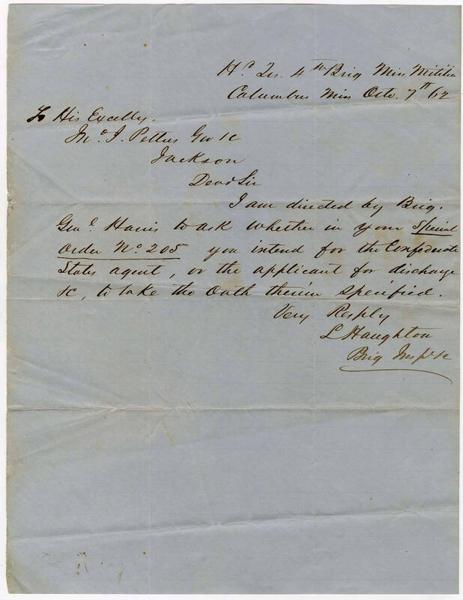 Hd Qrs. 4th Brig Miss Militia
Columbus Miss Octo. 7th 62
To His Excellcy.
Jno. J. Pettus Gov &c
Jackson
Dear Sir
I am directed by Brig.
Genl Harris to ask whether in your Special
Order No. 205 you intend for the Confederate
States agent, or the applicant for discharge
&c, to take the Oath therein specified.
Very Resply
L Haughton
Brig Insp &c